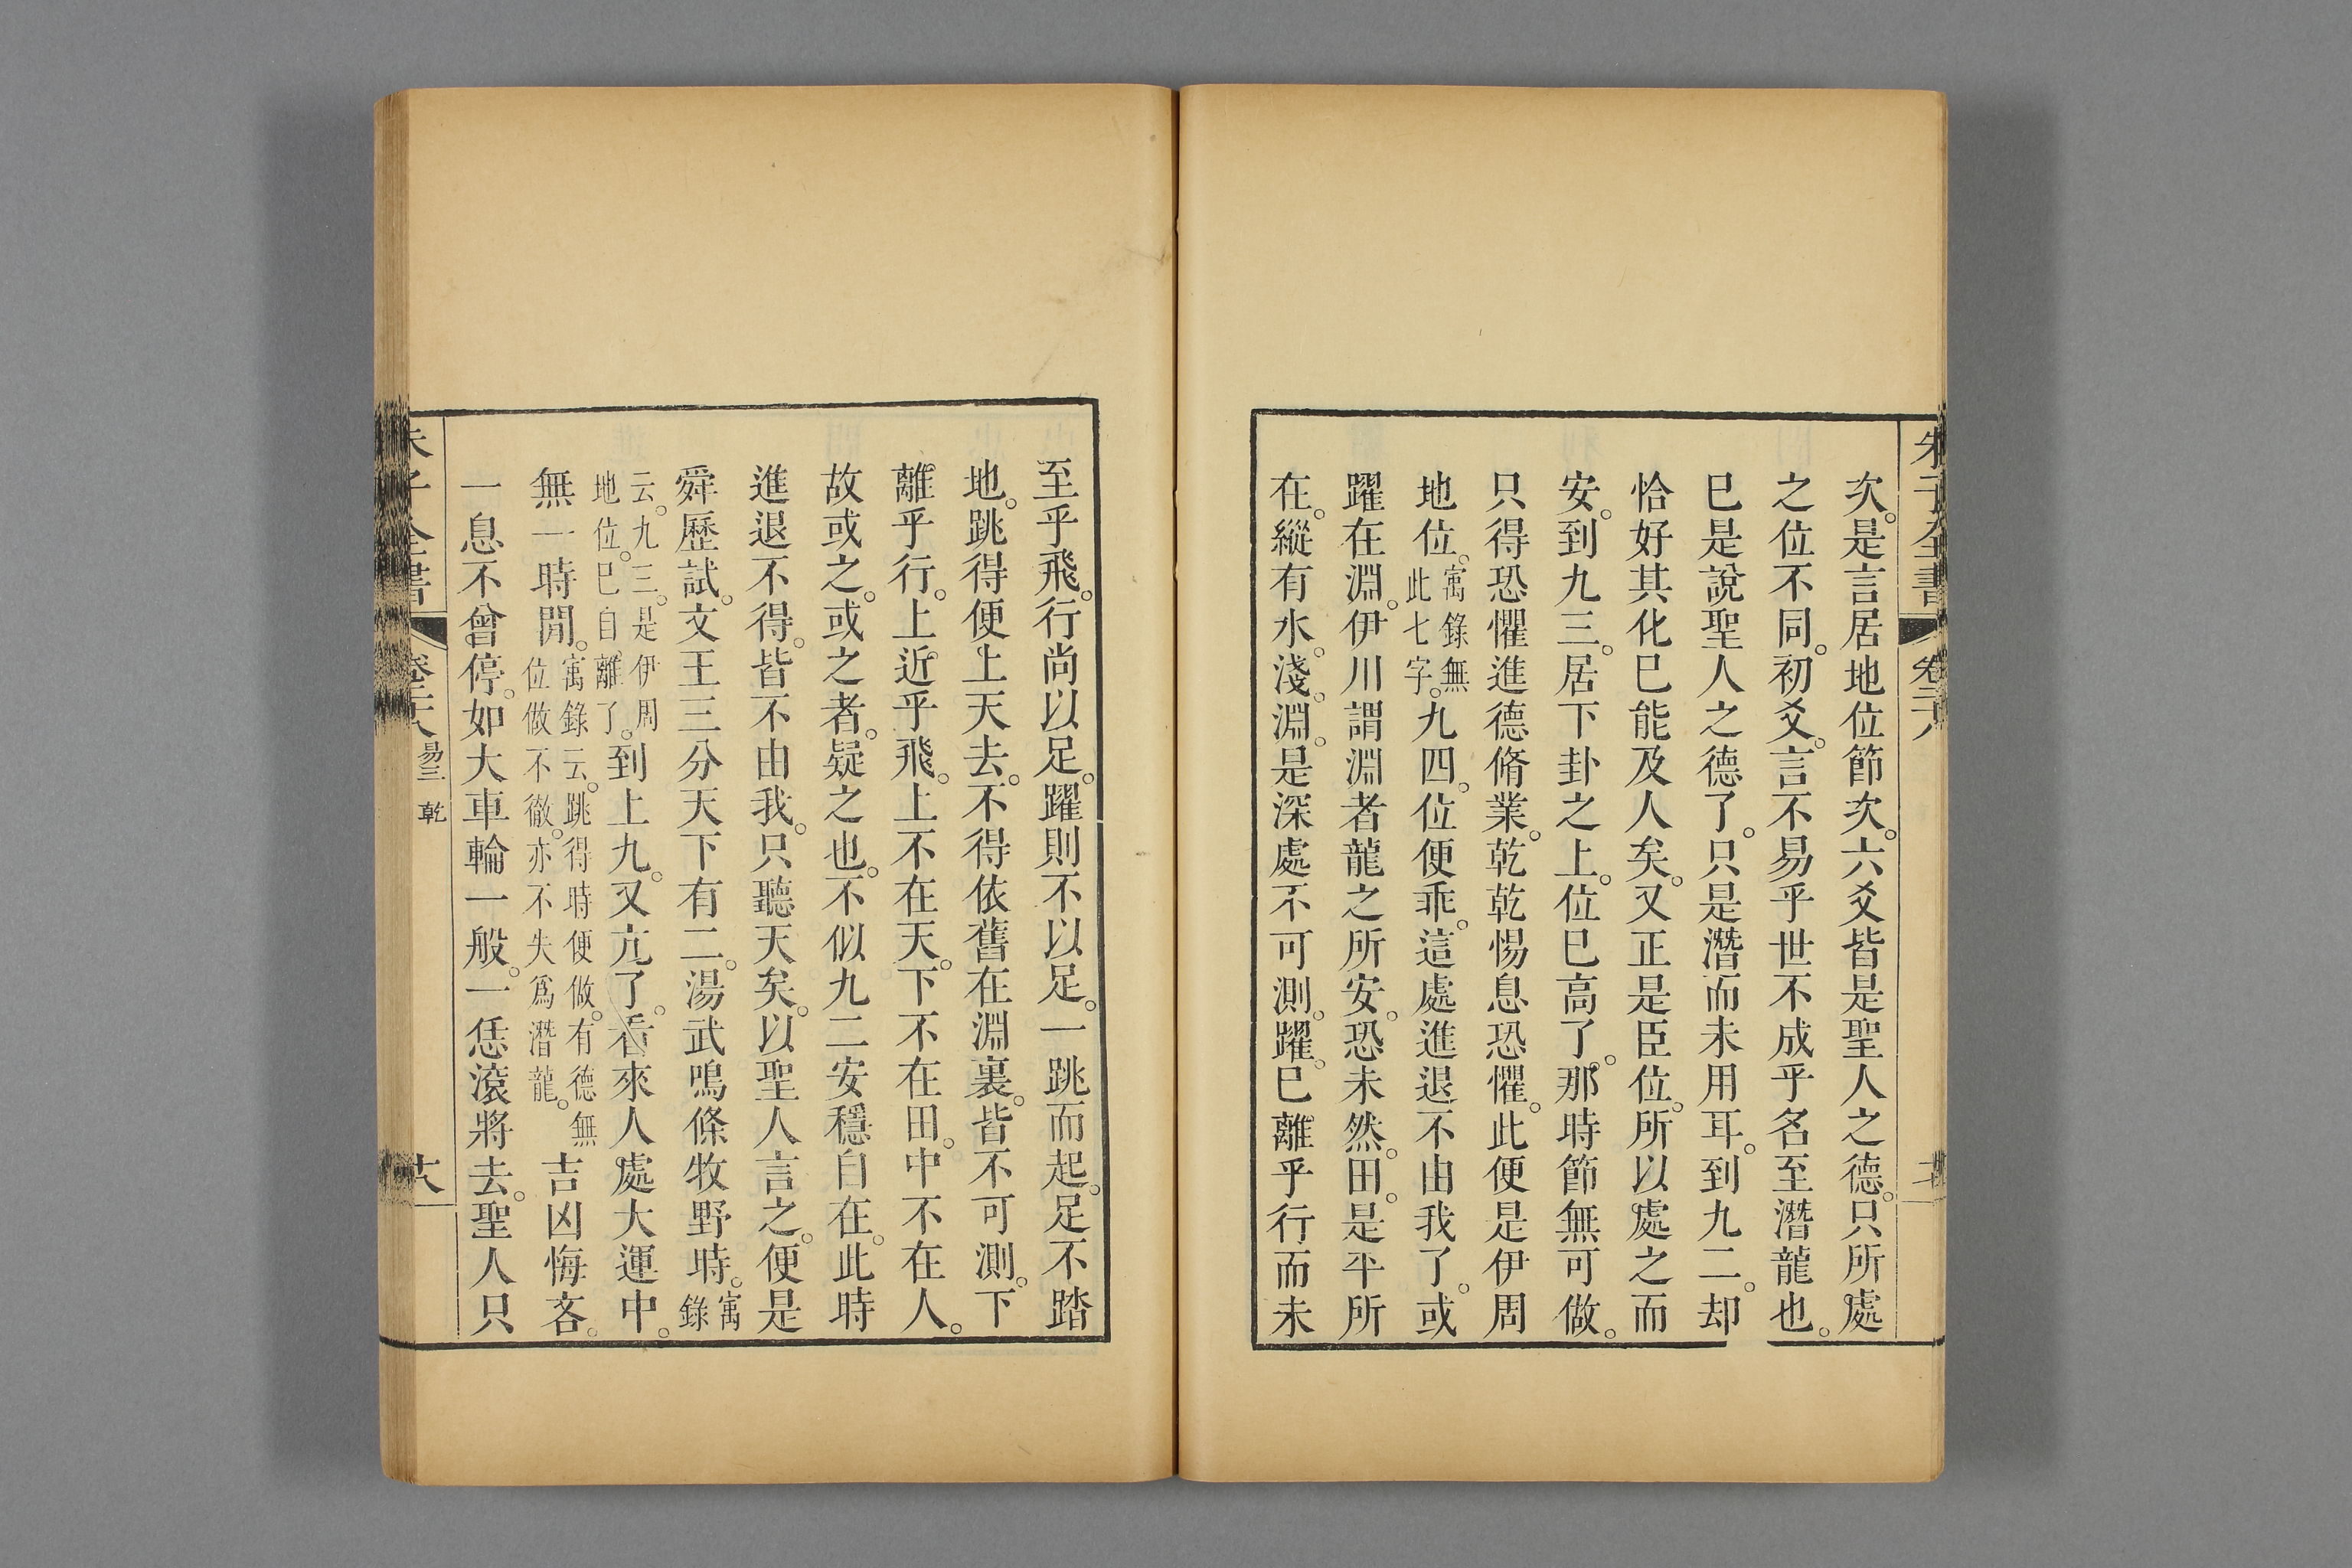 朱子全書 卷二十八
次。是言居地位節次。六爻皆是聖人之德。只所處
之位不同。初爻。言不易乎世不成乎名至潛龍也。
巳是說聖人之德了。只是潛而未用耳。到九二。却
恰好其化巳能及人矣。又正是臣位。所以處之而
安。到九三。居下卦之上。位巳高了。那時節無可做。
只得恐懼進德脩業。乾乾惕息恐懼。此便是伊周
地位。寓錄無此七字。九四。位便乖。這處進退不由我了。或
躍在淵。伊川謂淵者龍之所安。恐未然。田。是平所
在。縱有水。淺。淵。是深處不可測。躍。巳離乎行而未
至乎飛。行尚以足。躍則不以足。一跳而起。足不踏
地。跳得便上天去。不得依舊在淵裏。皆不可測。下
離乎行。上近乎飛。上不在天。下不在田。中不在人。
故或之。或之者。疑之也。不似九二安穩自在。此時
進退不得。皆不由我。只聽天矣。以聖人言之。便是
舜歷試。文王三分天下有二。湯武鳴條牧野時。寓錄
云。九三。是伊周地位。巳自離了。到上九。又亢了。看來人處大運中。
無一時閒。寓錄云。跳得時便做。有德無位做不徹。亦不失爲潛龍。吉凶悔吝。
一息不曾停。如大車輪一般。一恁滾將去。聖人只
朱子全書 卷二十八 易三 乾 十八